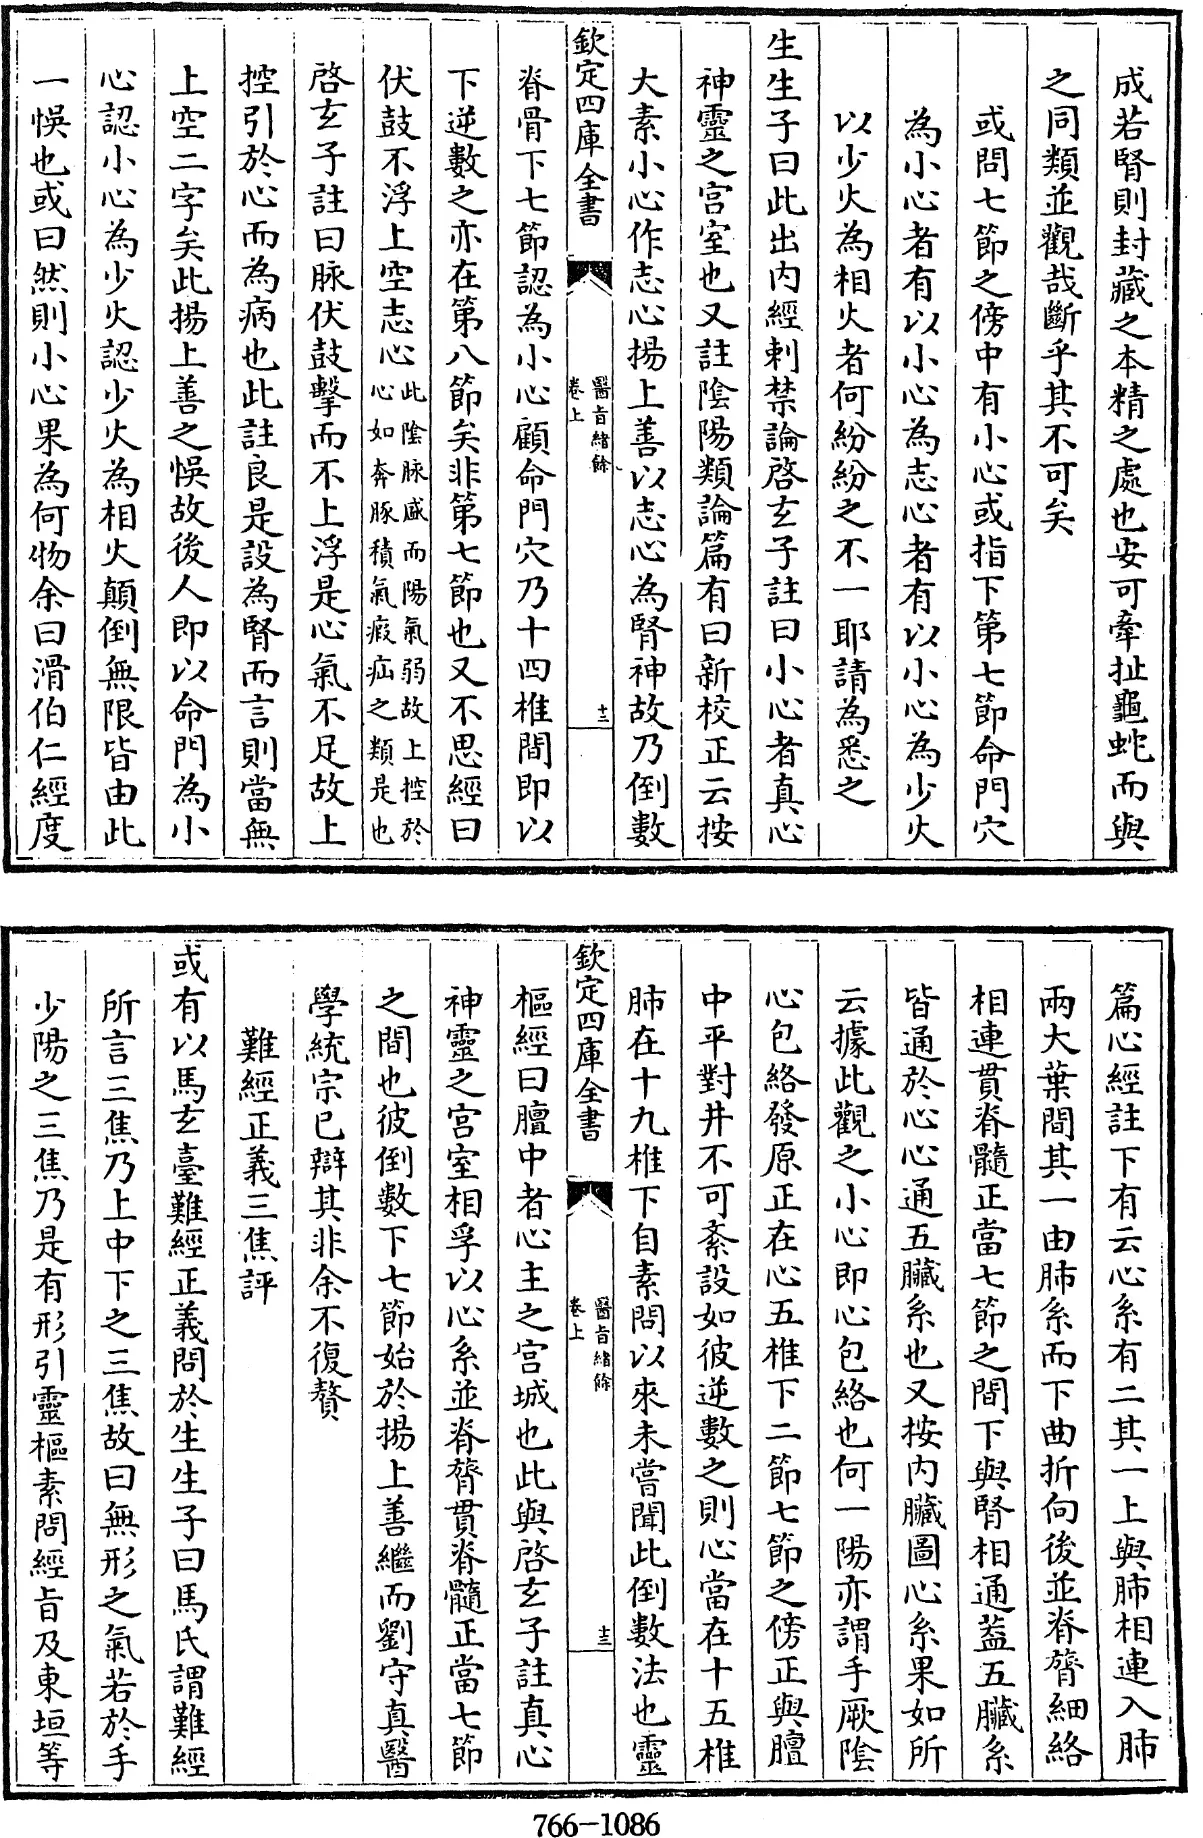 成若腎則封藏之本精之處也安可牽扯龜蛇而與
之同類並觀哉斷乎其不可矣
或問七節之傍中有小心或指下第七節命門穴
為小心者有以小心為志心者有以小心為少火
以少火為相火者何紛紛之不一耶請為悉之
生生子曰此出内經刺禁論啓玄子註曰小心者真心
神靈之宫室也又註陰陽類論篇有曰新校正云按
大素小心作志心揚上善以志心為腎神故乃倒數
欽定四庫全書
醫旨緒餘
卷上
十二
脊骨下七節認為小心顧命門穴乃十四椎間即以
下逆數之亦在第八節矣非第七節也又不思經曰
伏鼓不浮上空志心此陰脉盛而陽氣弱故上控於
心如奔豚積氣瘕疝之類是也
啓玄子註曰脉伏鼓擊而不上浮是心氣不足故上
控引於心而為病也此註良是設為腎而言則當無
上空二字矣此揚上善之悞故後人即以命門為小
心認小心為少火認少火為相火顛倒無限皆由此
一悞也或曰然則小心果為何物余曰滑伯仁經度
篇心經註下有云心系有二其一上與肺相連入肺
兩大葉間其一由肺系而下曲折向後並脊膂細絡
相連貫脊髓正當七節之間下與腎相通葢五臟系
皆通於心心通五臟系也又按内臟圖心系果如所
云據此觀之小心即心包絡也何一陽亦謂手厥陰
心包絡發原正在心五椎下二節七節之傍正與膻
中平對井不可紊設如彼逆數之則心當在十五椎
肺在十九椎下自素問以來未嘗聞此倒數法也靈
欽定四庫全書
醫旨緒餘
卷上
十三
樞經曰膻中者心主之宫城也此與啓玄子註真心
神靈之宫室相孚以心系並脊膂貫脊髓正當七節
之間也彼倒數下七節始於揚上善繼而劉守真醫
學統宗已辯其非余不復贅
難經正義三焦評
或有以馬玄臺難經正義問於生生子曰馬氏謂難經
所言三焦乃上中下之三焦故曰無形之氣若於手
少陽之三焦乃是有形引靈樞素問經旨及東垣等
766-1086